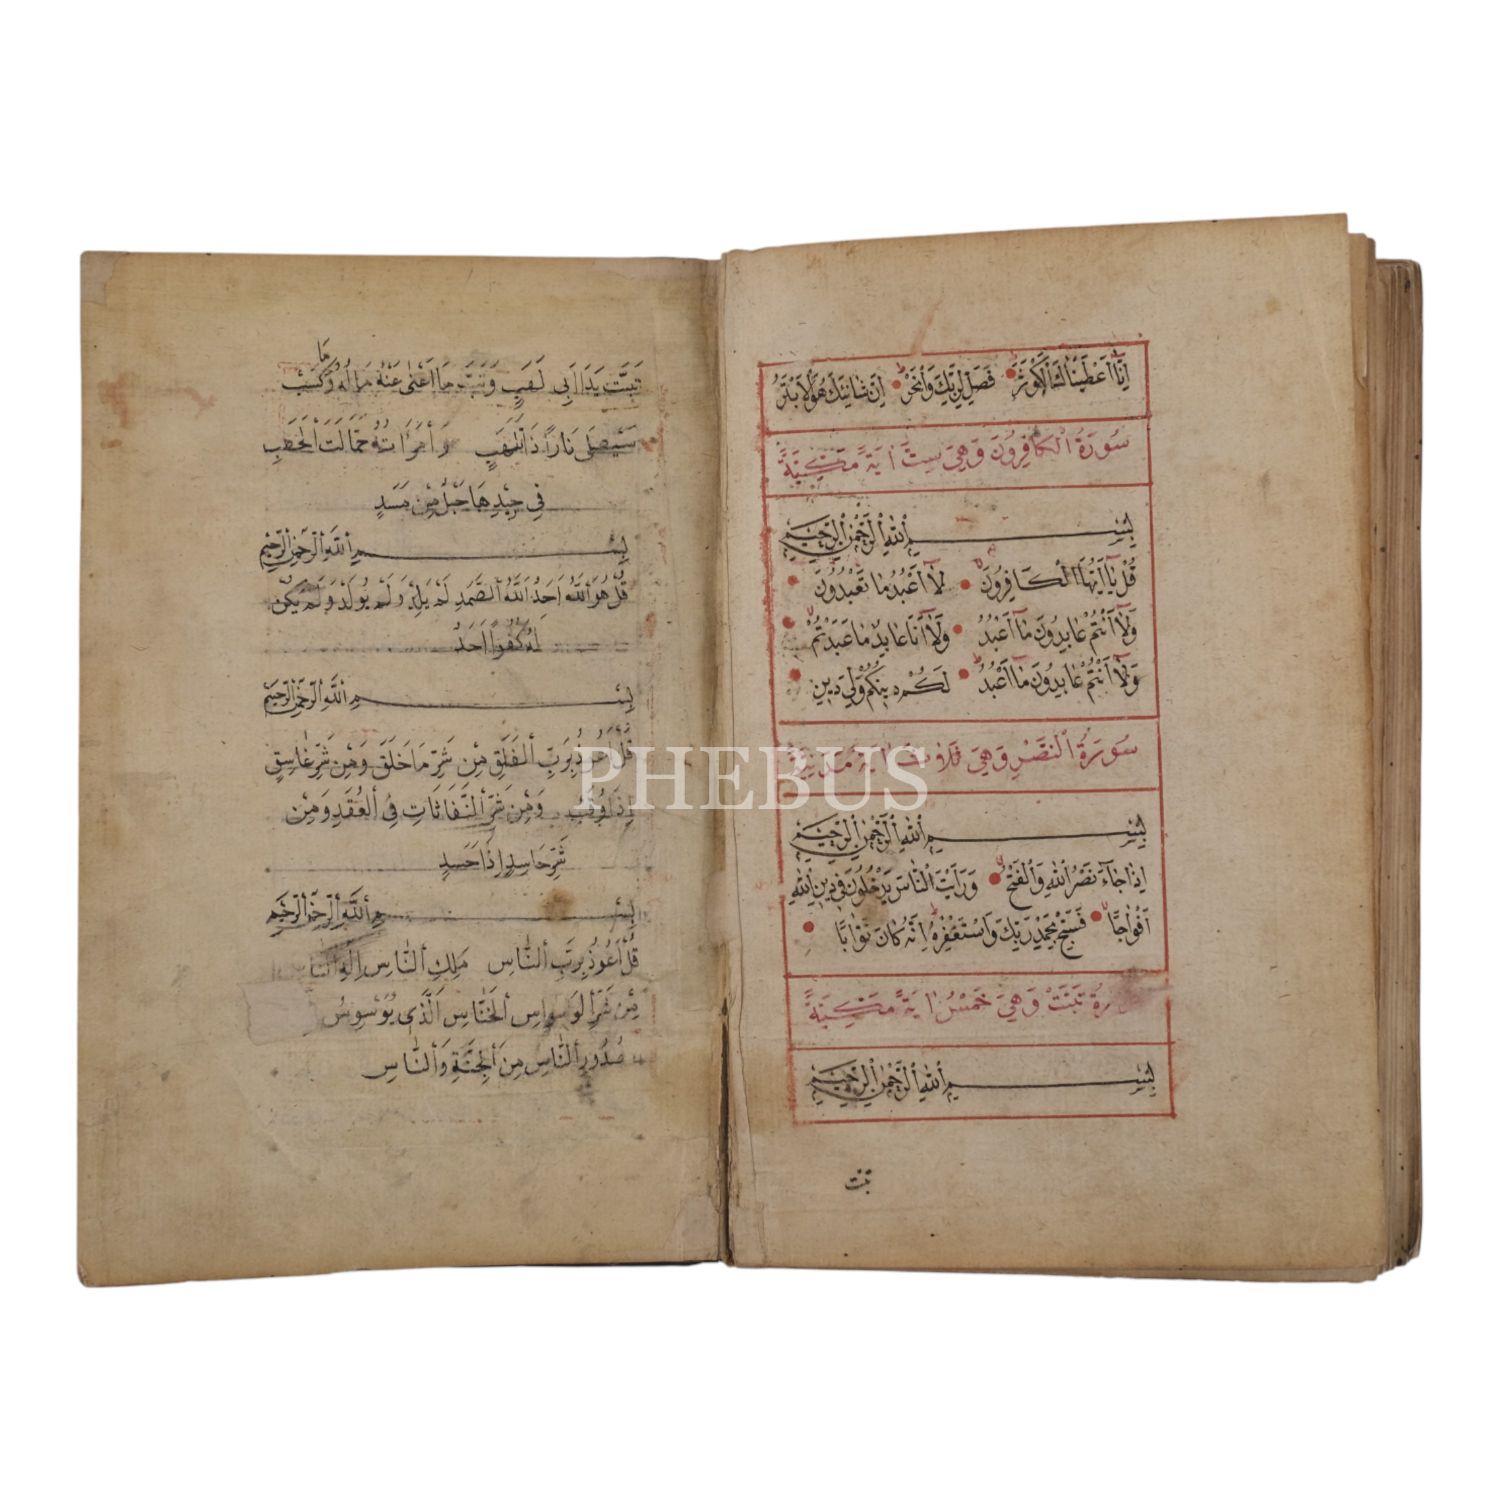 إِنَّا أَعْطَيْنَاكَ الْكَوْثَرَ فَصَلِّ لِرَبِّكَ وَانْحَرْ إِنَّ شَانِئَكَ هُوَ الْأَبْتَرُ
سُورَةُ الْكَافِرُونَ وَهِيَ سِتُّ اٰيَةً مَكِّيَّةً
بِسْمِ اللهِ الرَّحْمٰنِ الرَّحِيمِ
قُلْ يَا أَيُّهَا الْكَافِرُونَ لَا أَعْبُدُ مَا تَعْبُدُونَ
وَلَا أَنْتُمْ عَابِدُونَ مَا أَعْبُدُ وَلَا أَنَا عَابِدٌ مَا عَبَدْتُمْ
وَلَا أَنْتُمْ عَابِدُونَ مَا أَعْبُدُ لَكُمْ دِينُكُمْ وَلِيَ دِينِ
سُورَةُ النَّصْرِ وَهِيَ ثلاث اٰية مدنية
بِسْمِ اللهِ الرَّحْمٰنِ الرَّحِيمِ
إِذَا جَاءَ نَصْرُ اللهِ وَالْفَتْحُ وَرَأَيْتَ النَّاسَ يَدْخُلُونَ فِي دِينِ اللهِ
أَفْوَاجًا فَسَبِّحْ بِحَمْدِ رَبِّكَ وَاسْتَغْفِرْهُ إِنَّهُ كَانَ تَوَّابًا
تَبَّتْ وَهِيَ خَمْسُ اٰيَةً مَكِّيَّةً
بِسْمِ اللهِ الرَّحْمٰنِ الرَّحِيمِ
تبت
تَبَّتْ يَدَا أَبِي لَهَبٍ وَتَبَّ مَا أَغْنَى عَنْهُ مَالُهُ وَمَا كَسَبَ
سَيَصْلَى نَارًا ذَاتَ لَهَبٍ وَامْرَأَتُهُ حَمَّالَتَ الْحَطَبِ
فِي جِيدِهَا حَبْلٌ مِنْ مَسَدٍ
بِسْمِ اللهِ الرَّحْمٰنِ الرَّحِيمِ
قُلْ هُوَ اللهُ أَحَدٌ اللهُ الصَّمَدُ لَمْ يَلِدْ وَلَمْ يُولَدْ وَلَمْ يَكُنْ
لَهُ كُفُوًا أَحَدٌ
بِسْمِ اللهِ الرَّحْمٰنِ الرَّحِيمِ
قُلْ أَعُوذُ بِرَبِّ الْفَلَقِ مِنْ شَرِّ مَا خَلَقَ وَمِنْ شَرِّ غَاسِقٍ
إِذَا وَقَبَ وَمِنْ شَرِّ النَّفَّاثَاتِ فِي الْعُقَدِ وَمِنْ
شَرِّ حَاسِدٍ إِذَا حَسَدَ
بِسْمِ اللهِ الرَّحْمٰنِ الرَّحِيمِ
قُلْ أَعُوذُ بِرَبِّ النَّاسِ مَلِكِ النَّاسِ إِلٰهِ النَّاسِ
مِنْ شَرِّ الْوَسْوَاسِ الْخَنَّاسِ الَّذِي يُوَسْوِسُ
صُدُورِ النَّاسِ مِنَ الْجِنَّةِ وَالنَّاسِ
PHEBUS